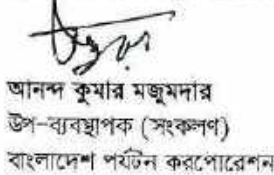 আনন্দ কুমার মজুমদার
উপ-ব্যবস্থাপক (সংকলণ)
বাংলাদেশ পর্যটন করপোরেশন